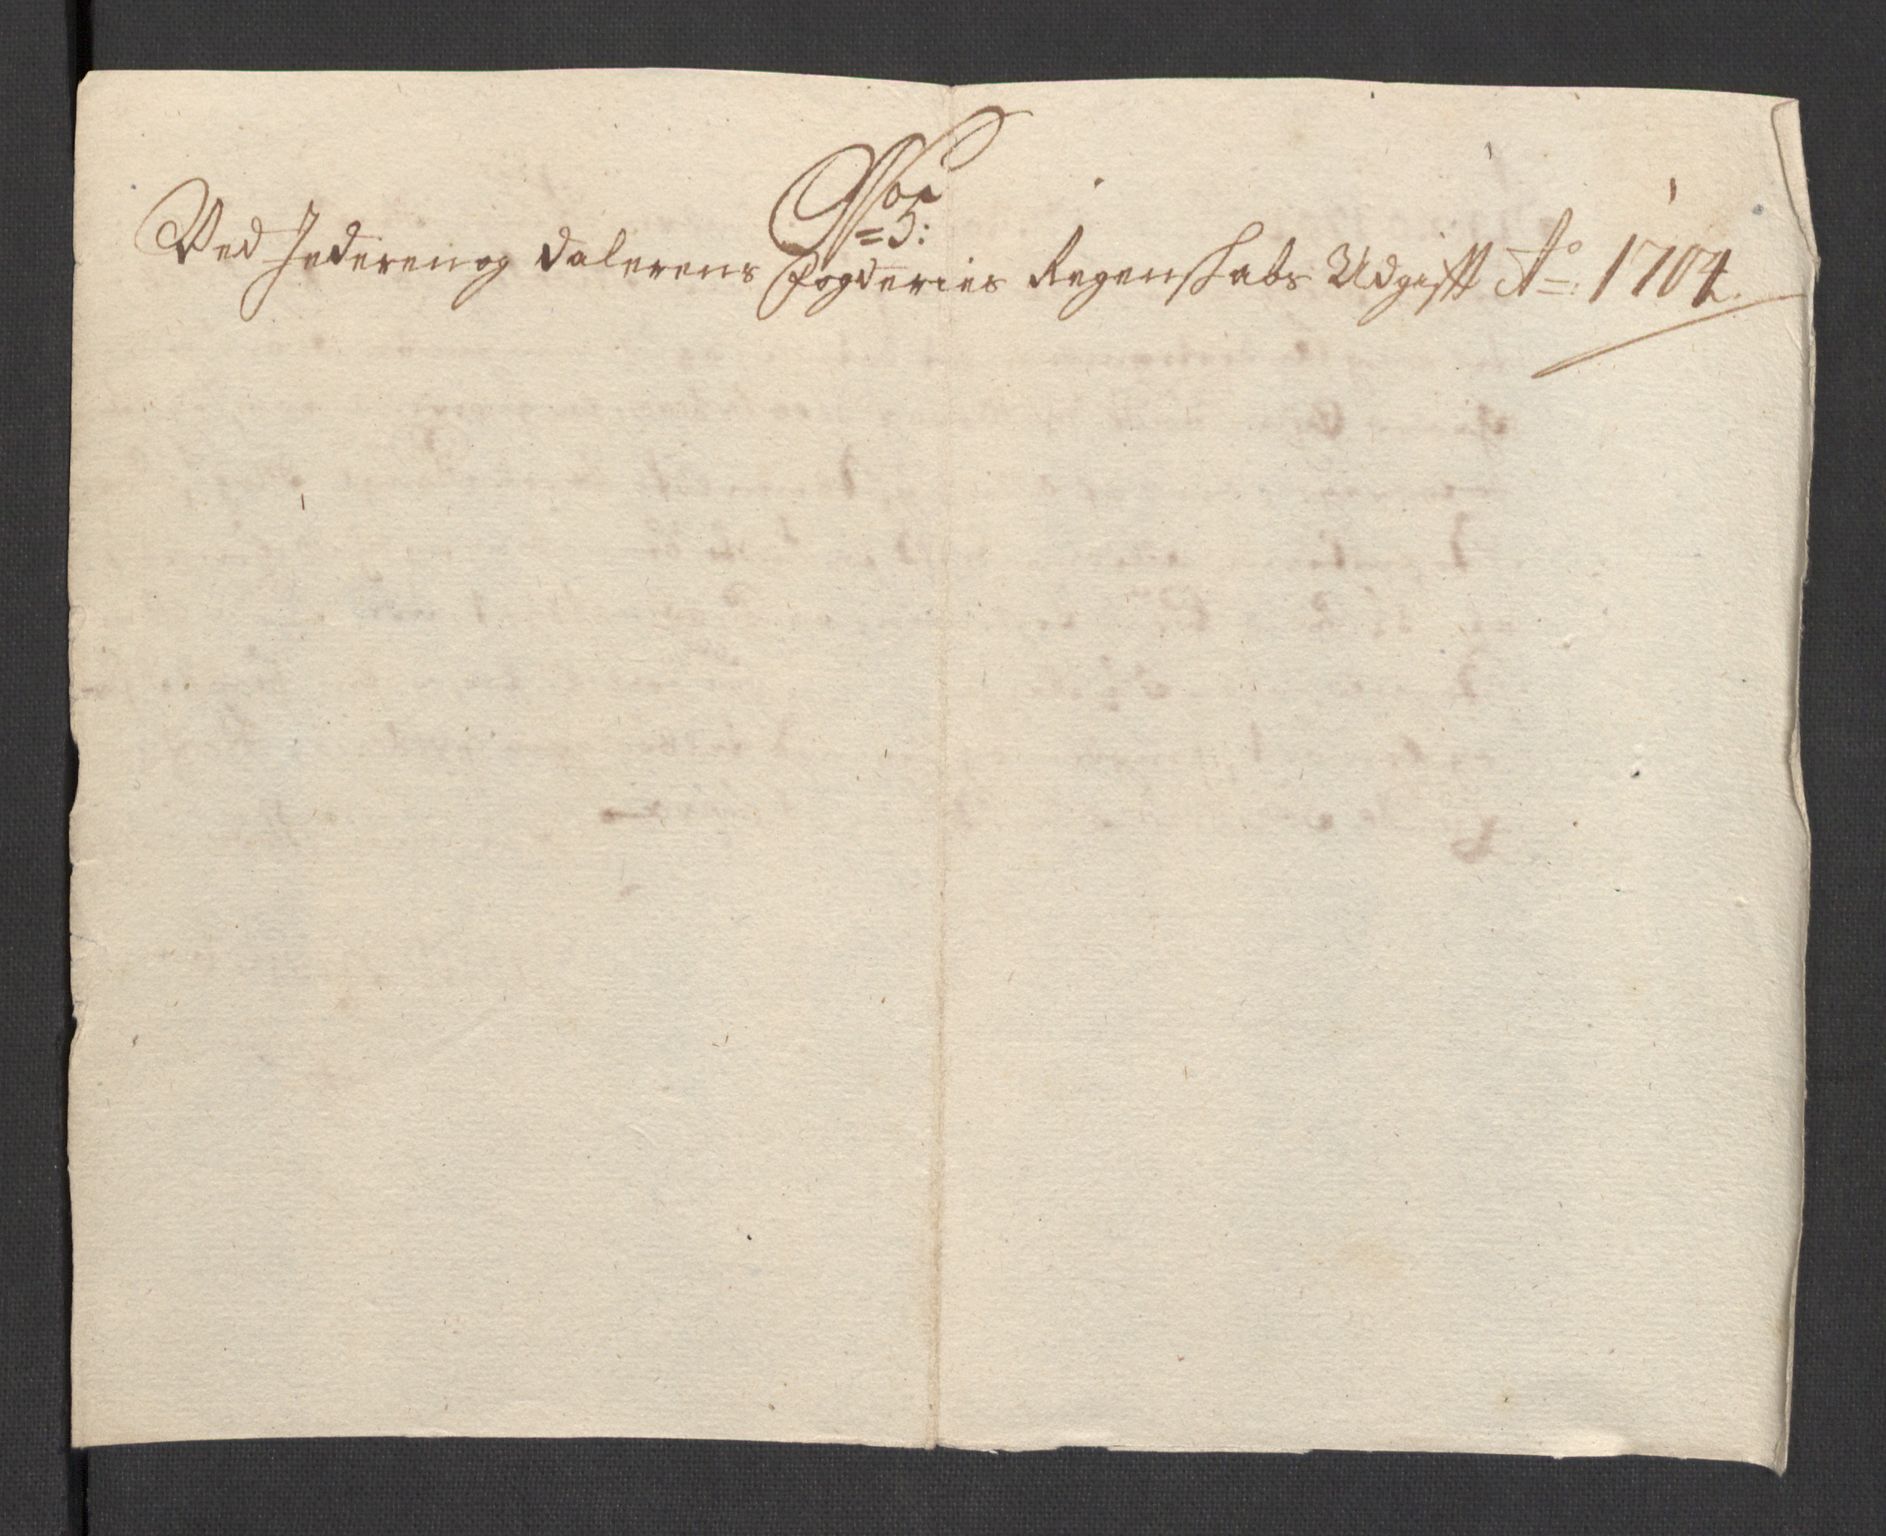 No 5:
Ved Jederen og Dalerens Fogderies Regenskabs Udgifft Ao: 1704.